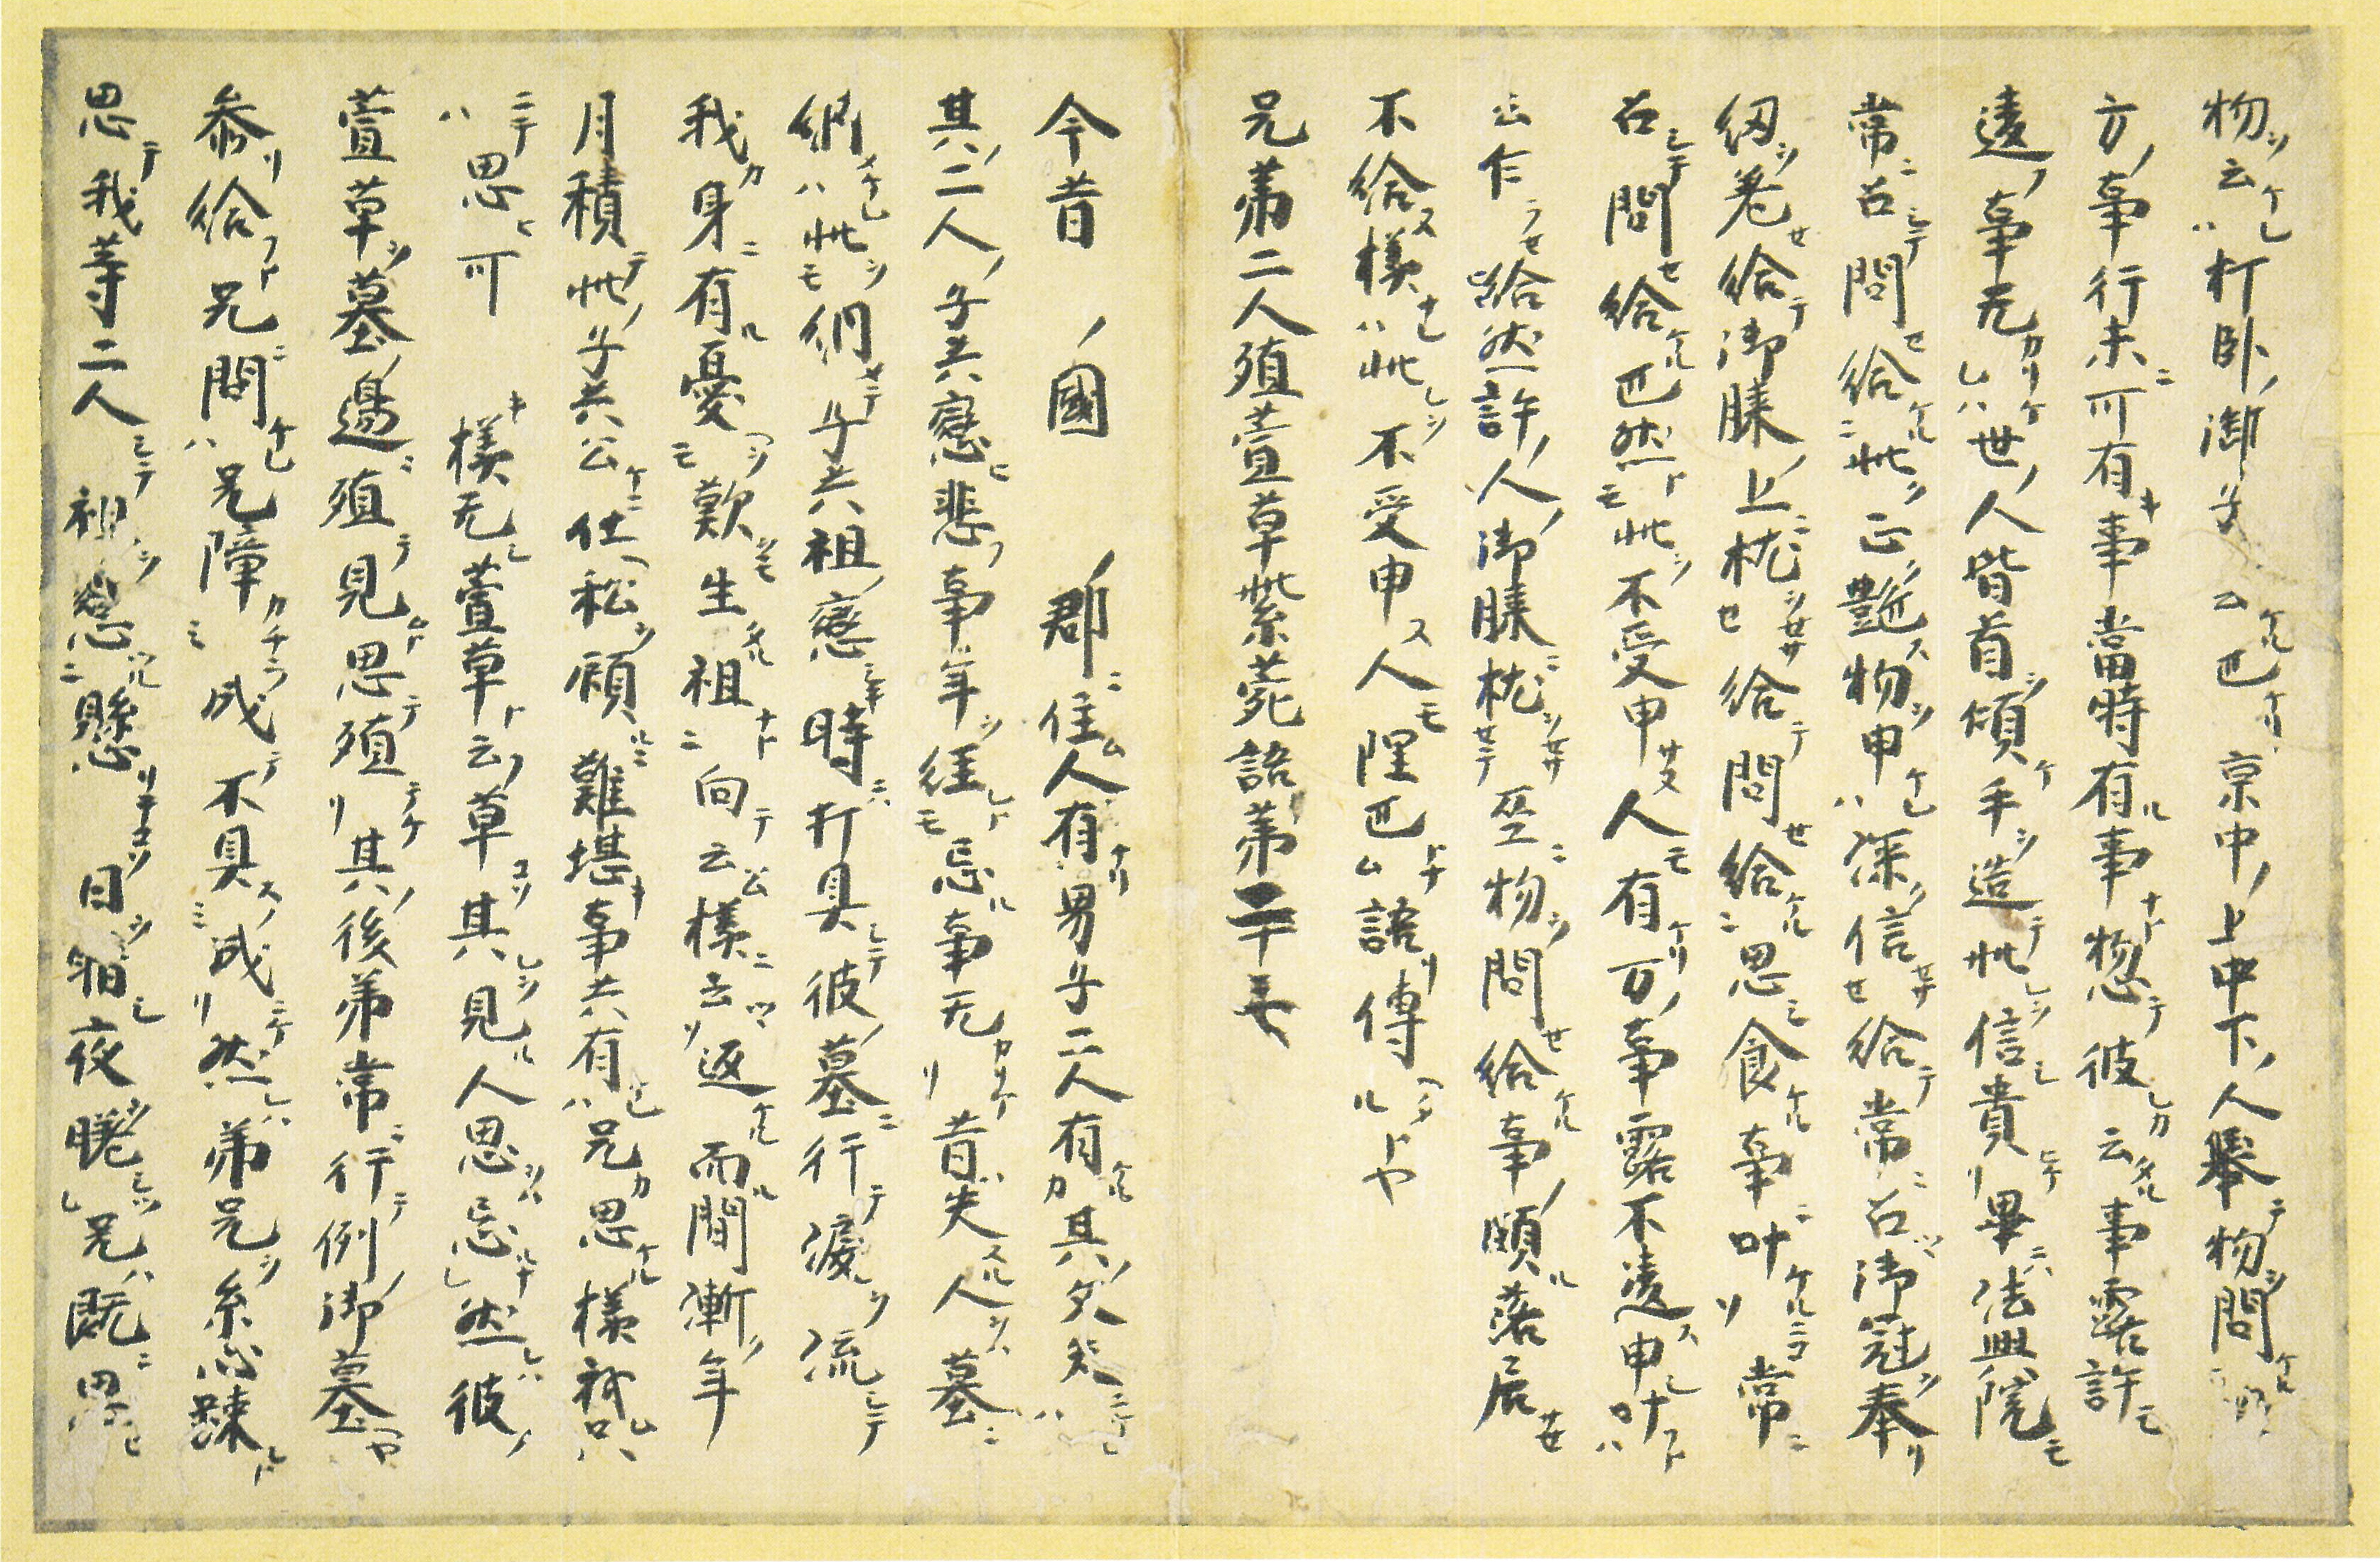 物ヲ云ケレハ打臥ノ御子 云ケル也ケリ京中ノ上中下ノ人擧テ物ヲ問ケルニ
方ノ事行末ニ可有キ事當時有ル事ナト惣テ彼レカ云タル事露許モ
違フ事无カリケレハ世ノ人皆首ヲ傾ケ手ヲ造テ此レヲ信シ貴ヒケリ畢ニハ法興院モ
常ニ召シテ問セ給ケルニ此ク正ク艶ス物ヲ申ケレハ深ク信セサセ給テ常ニ召ツヽ御冠ヲ奉リ
紐ヲ差セ給テ御膝ノ上ニ枕ヲセサセ給テ問セ給ケルニ思シ食ケル事ニ叶ケルニコソ常ニ
召シテ問セ給ケル也然トモ此ヲ不受申サヌ人モ有ケリ万ノ事露不違ス申シ叶フトハ
云乍ラ然許ノ人ノ御膝ニ枕ヲセサセテ巫ニ物ヲ問セ給ケル事ノ頗ル落居セ
不給ヌ様ナレハ此レヲ不受申ス人モ理也トナム語リ傳ヘタルトヤ
兄弟二人殖萱草紫菀語第二十七
今昔 ノ國 ノ郡ニ住ム人有ナリ男子二人有ケルカ其ノ父失ニケレハ
其ノ二人ノ子共戀ヒ悲フ事年ヲ經レトモ忘ル事无カリケリ昔ハ失ヌル人ヲハ墓ニ
納メケレハ此ヲモ納メテ子共祖ノ戀シキ時ニハ打具シテ彼ノ墓ニ行テ涙ヲ流シテ
我カ身ニ有ル憂ヘヲモ歎ヲモ生タル祖ナトニ向テ云ハム様ニ云ツヽソ返ケル而ル間漸ク年
月積テ此ノ子共公ケニ仕ヘ私ヲ顧ルニ難堪キ事共有ケレハ兄カ思ケル様我レ只
ニテハ思ヒ可 キ様无シ萱草ト云フ草コソ其レヲ見ル人思ヲハ忘ルナレ然レハ彼ノ
萱草ヲ墓ノ邊ニ殖テ見ムト思テ殖テケリ其ノ後弟常ニ行テ例ノ御墓ヘヤ
參リ給フト兄ニ問ケレハ兄障カチニノミ成テ不具スノミ成ニケリ然レハ弟兄ヲ糸心踈シト
思テ我等二人シテ祖ヲ戀ツルニ懸リテコソ日ヲ暗シ夜ヲ曙シツレ兄ハ既ニ思ヒ